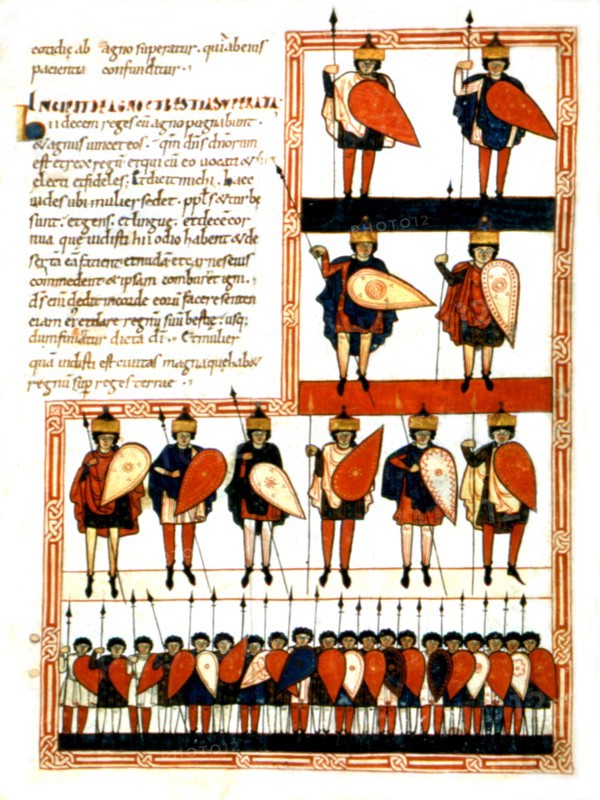 cotidie ab agno superatur. qui ab eius
pacientia confunditur.
INCIPIT DE AGNO ET BESTIA SUPERATA
ii decem reges cū agno pugnabunt.
& agnus uincet eos. qm̄ dn̄s dn̄orum
est et rex regū et qui cū eo uocati &
electi et fideles; Et dicit michi. hec
uides ubi mulier sedet. ppl̄s & turbe
sunt. et gens. et lingue. et decē cor
nua que uidisti hii odio habent & de
sertā eā facient et nudā et carnes eius
commedent & ipsam comburēt igni.
ds̄ enī dedit in corde eorū facere senten
ciam ei et dare regnū suū bestie. usq;
dum finiatur dicta di. Et mulier
quā uidisti est ciuitas magna que hab&
regnū sup reges terrae.
PHOTO12
PHOTO12